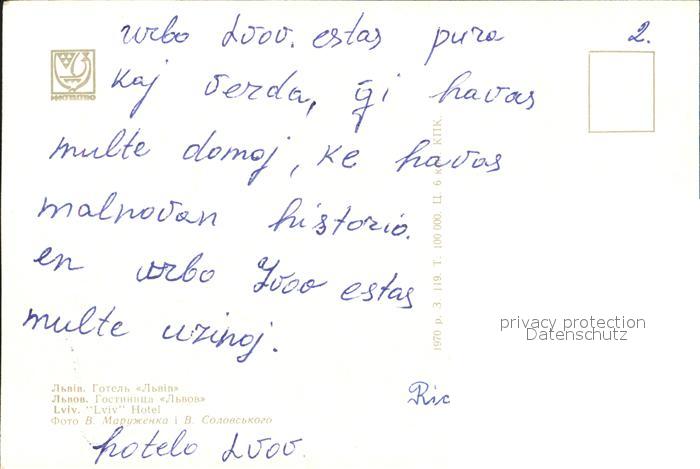 2.
urbo Lvov. estas pura
kaj verda, ĝi havas
multe domoj, ke havas
malnovan historio.
en urbo Lvov estas
multe uzinoj.
Львів. Готель «Львів»
Львов. Гостиница «Львов»
Lviv. "Lviv" Hotel
Фото В. Маруженка і В. Соловського
hotelo Lvov.
Ric
1970 р. З. 119. Т. 100 000. Ц. 6 к. КПК.
privacy protection
Datenschutz
МИСТЕЦТВО